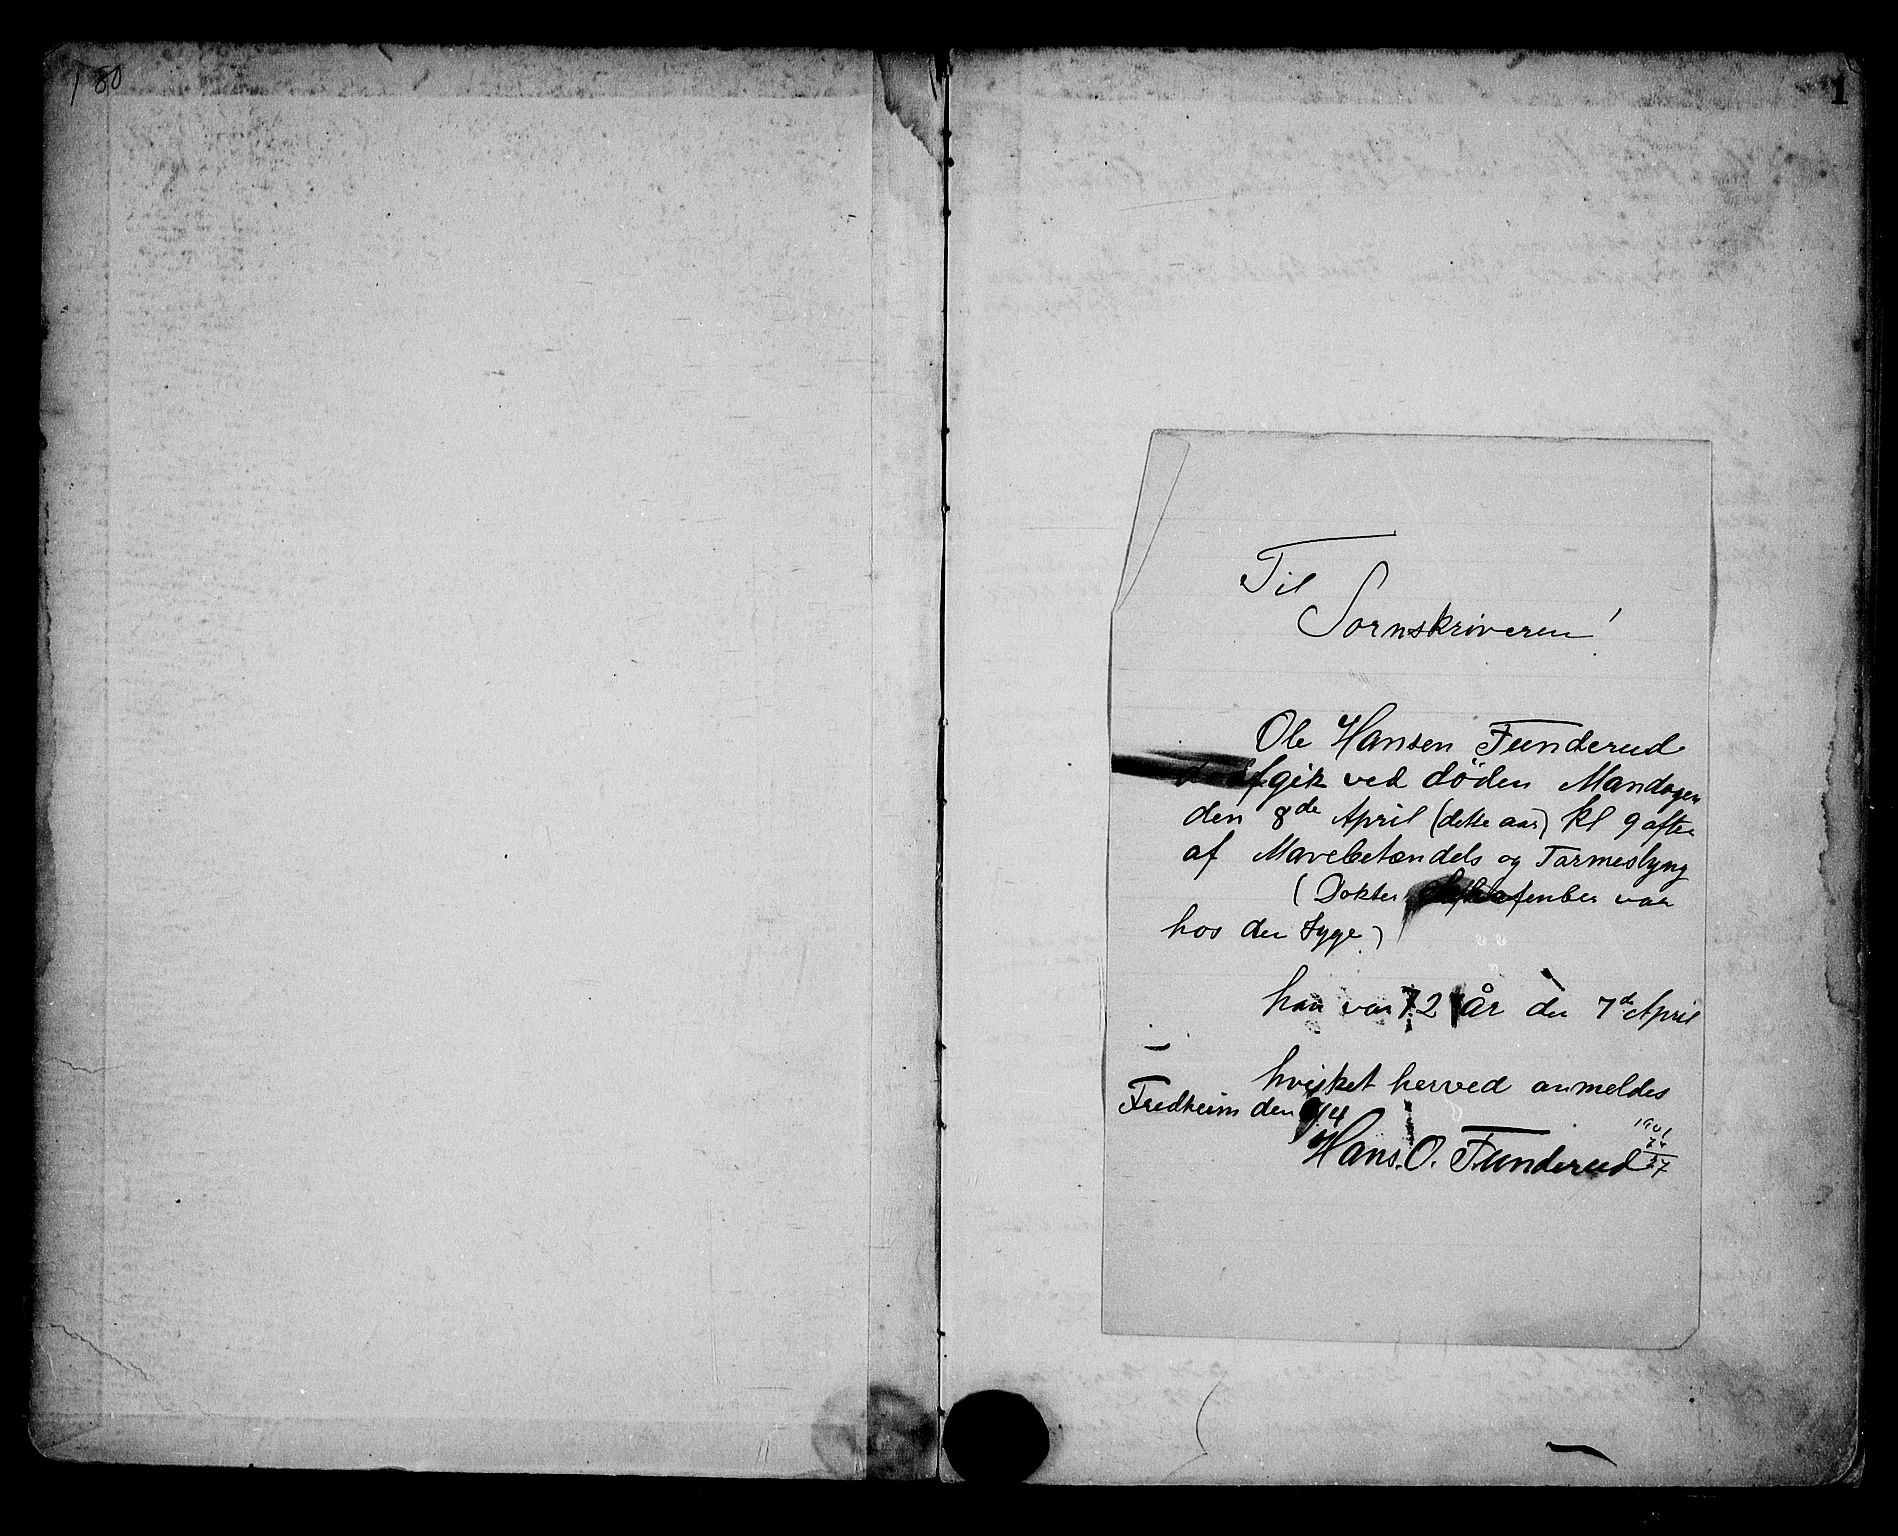 80
1
Til
Sornskriveren!
Ole Hansen Funderud
afgik ved döden Mandagen
den 8de April (dette aar) kl 9 aften
af Mavebetændels og Tarmeslyng
(Dokter var
hos den Syge)
han var 72 År den 7de April
hvilket herved anmeldes
Fredheim den 9/4
1901
72
Hans. O. Funderud